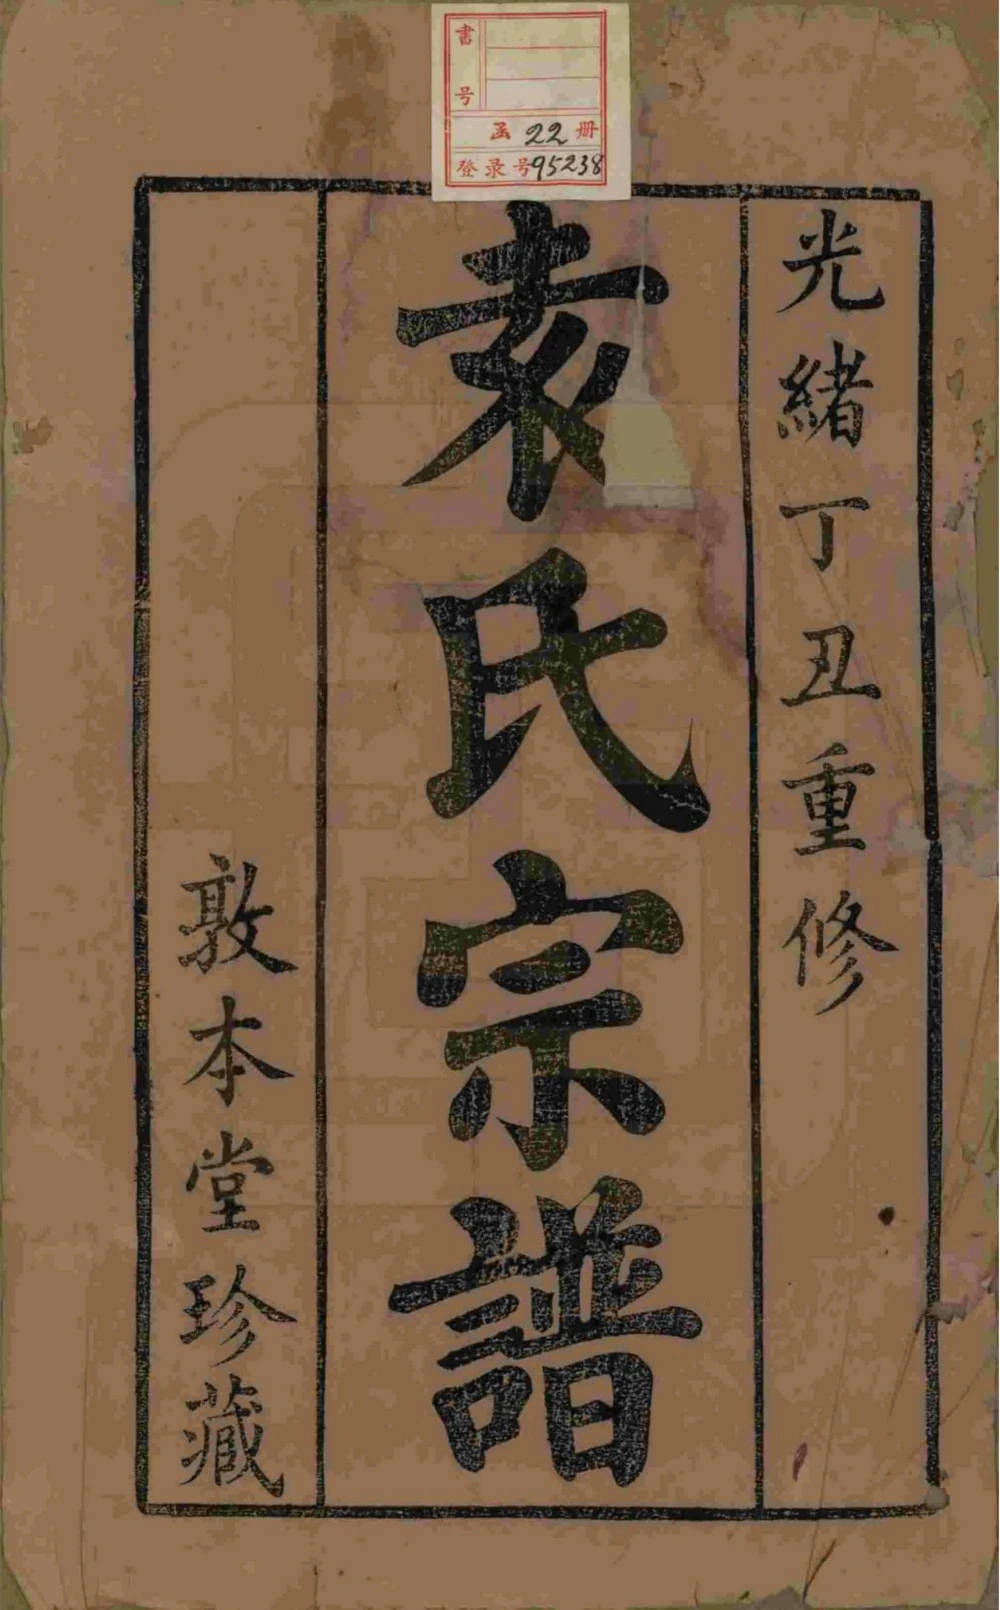 書号
函 22 册
登录号 95238
光緒丁丑重修
袁氏宗譜
敦本堂珍藏